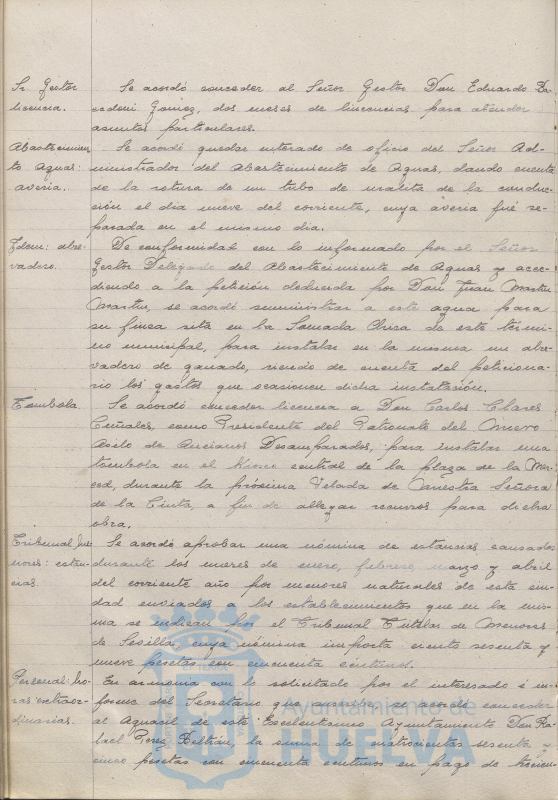 Sr. Gestor
licencia.
Se acordó conceder al Señor Gestor Don Eduardo
Gomez, dos meses de lincencias para atender
asuntos particulares.
Abastecimien
to Aguas:
averia.
Se acordó quedar enterado de oficio del Señor Ad-
ministrador del Abastecimiento de Aguas, dando cuenta
de la rotura de un tubo de uralita de la conduc-
ción el dia nueve del corriente, cuya averia fué re-
parada en el mismo dia.
Idem: abre-
vadero.
De conformidad con lo informado por el Señor
Gestor Delegado del Abastecimiento de Aguas y acce-
diendo a la petición deducida por Don Juan Martin
Martin, se acordó suministrar a este agua para
su finca sita en la Tomada Chica de este térmi-
no municipal, para instalar en la misma un abre-
vadero de ganado, siendo de cuenta del peticiona-
rio los gastos que ocasionen dicha instalación.
Tombola
Se acordó conceder licencia a Don Carlos
como Presidente del Patronato del Nuevo
Asilo de Ancianos Desamparados, para instalar una
tombola en el Kiosco central de la plaza de la Mer-
ced, durante la próxima Velada de Nuestra Señora
de la Cinta, a fin de allegar recursos para dicha
obra.
Tribunal Me-
nores: estan-
cias.
Se acordó aprobar una nómina de estancias causadas
durante los meses de enero, febrero, marzo y abril
del corriente año por menores naturales de esta ciu-
dad enviados a los establecimientos que en la mis-
ma se indican por el Tribunal Tutelar de Menores
de Sevilla, cuya nómina importa ciento sesenta y
nueve pesetas con cincuenta céntimos.
Personal: ho-
ras extraor-
dinarias.
En armonia con lo solicitado por el interesado é in-
forme del Secretario que suscribe se acordó conceder
al Aguacil de este Excelentisimo Ayuntamiento Don Ra-
fael Perez Beltrán, la suma de cuatrocientas sesenta y
cinco pesetas con cincuenta centimos en pago de
Ayuntamiento de
HUELVA